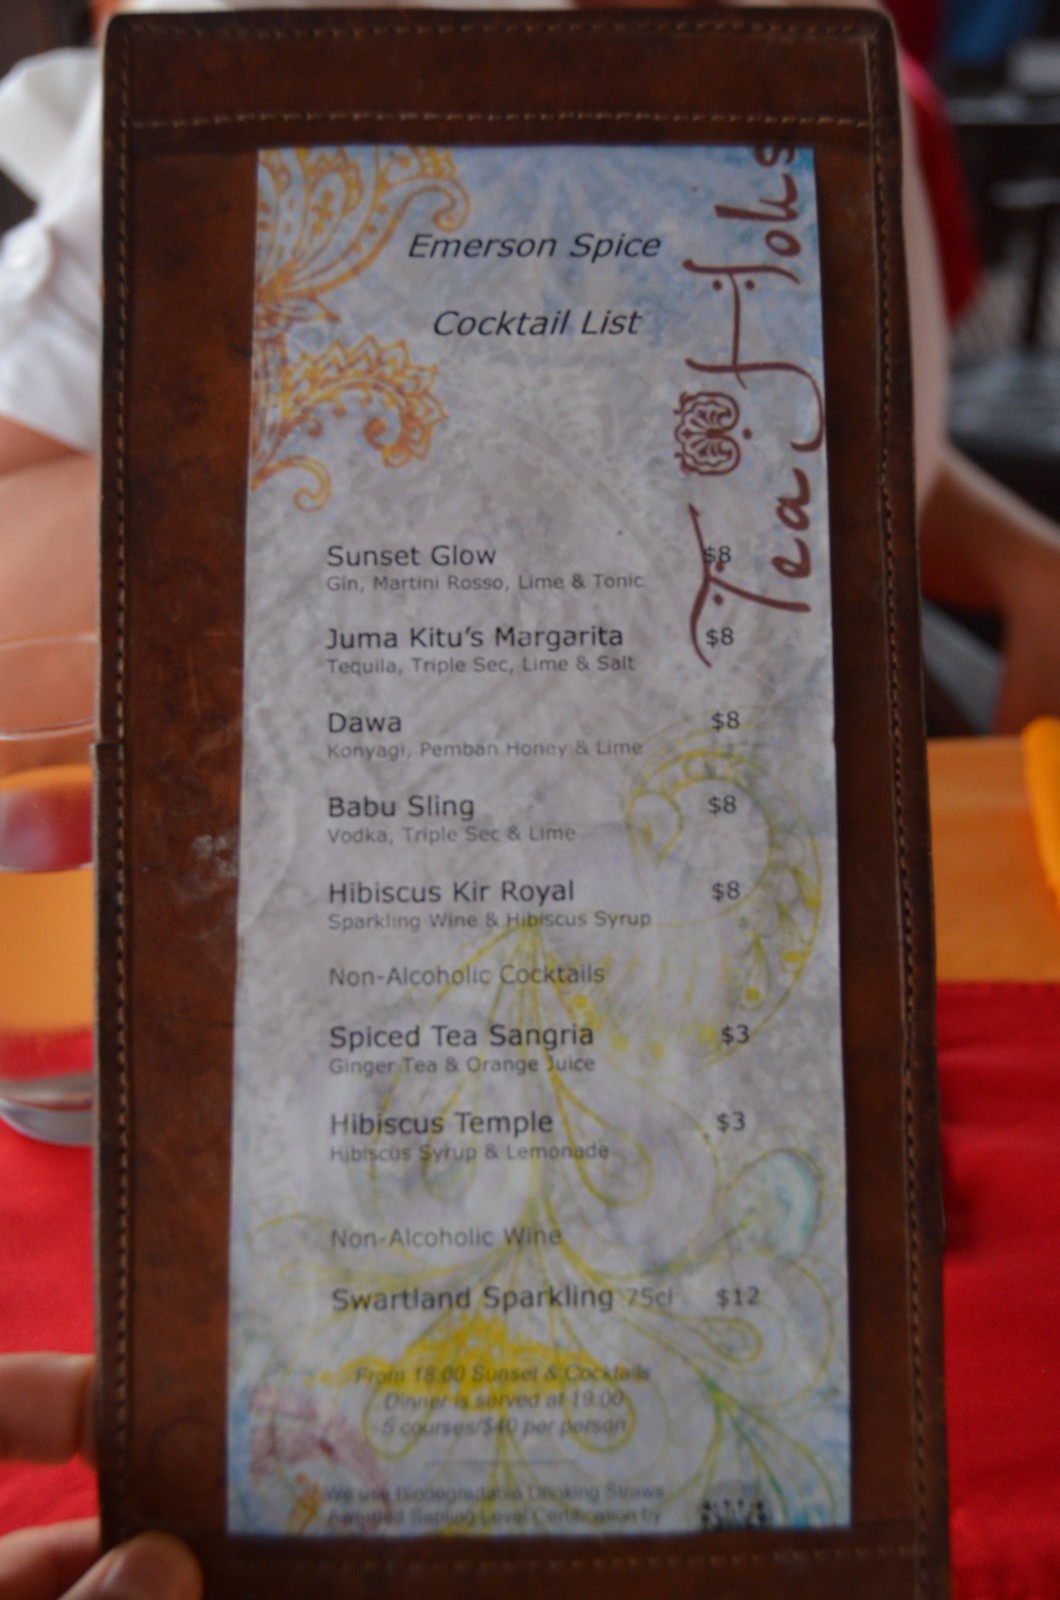 Emerson Spice
Cocktail List
Tea Hous
Sunset Glow $8
Gin, Martini Rosso, Lime & Tonic
Juma Kitu's Margarita $8
Tequila, Triple Sec, Lime & Salt
Dawa $8
Konyagi, Pemban Honey & Lime
Babu Sling $8
Vodka, Triple Sec & Lime
Hibiscus Kir Royal $8
Sparkling Wine & Hibiscus Syrup
Non-Alcoholic Cocktails
Spiced Tea Sangria $3
Ginger Tea & Orange Juice
Hibiscus Temple $3
Hibiscus Syrup & Lemonade
Non-Alcoholic Wine
Swartland Sparkling 75cl $12
From 18:00 Sunset & Cocktails
Dinner is served at 19:00
5 courses/$40 per person
We use Biodegradable Drinking Straws
Awarded Sapling Level Certification by